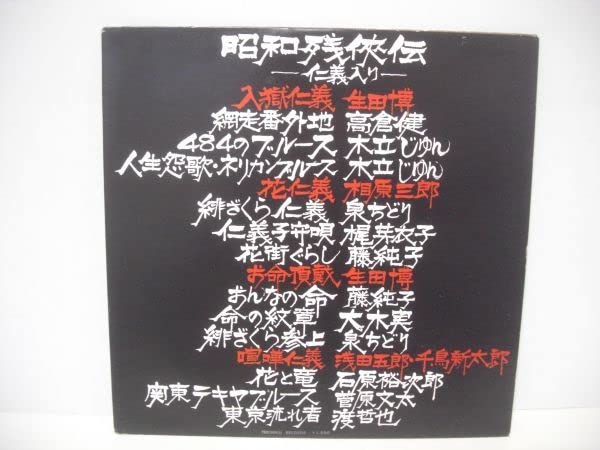 昭和残侠伝
―仁義入り―
入獄仁義 生田博
網走番外地 高倉健
484のブルース 木立じゅん
人生怨歌・ネリカンブルース 木立じゅん
花仁義 相原三郎
緋ざくら仁義 泉ちどり
仁義子守唄 梶芽衣子
花街ぐらし 藤純子
お命頂戴 生田博
おんなの命 藤純子
命の紋章 大木実
緋ざくら参上 泉ちどり
喧嘩仁義 浅田五郎・千鳥新太郎
花と竜 石原裕次郎
関東テキヤブルース 菅原文太
東京流れ者 渡哲也